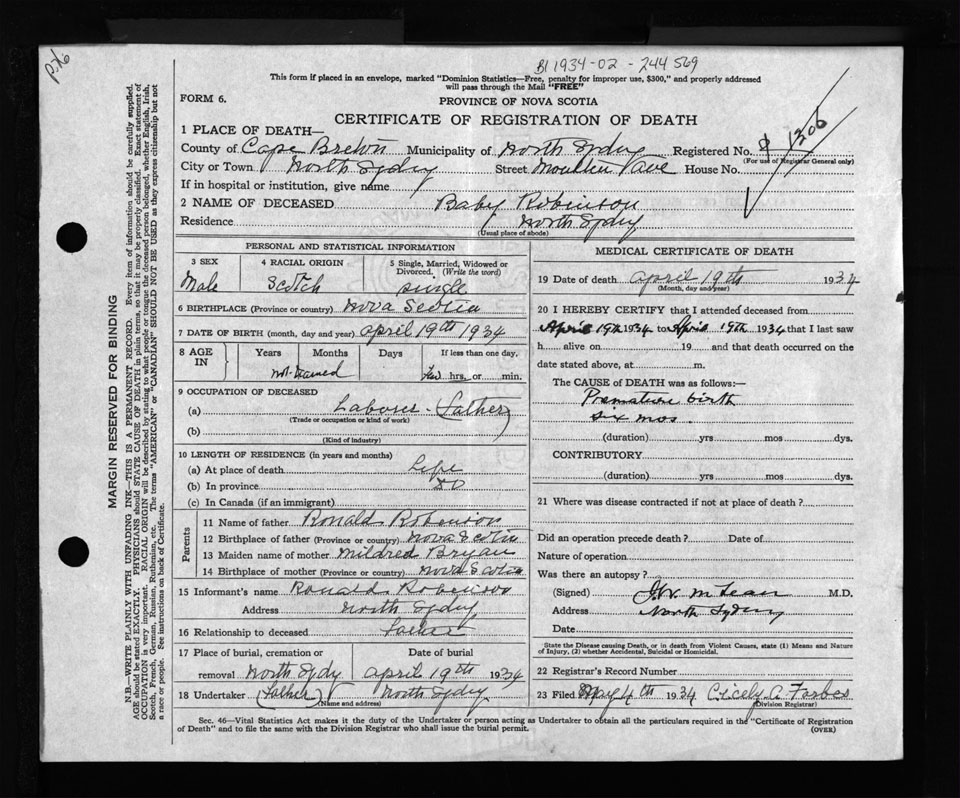 P.26
B1 1934-02 - 244569
This form if placed in an envelope, marked "Dominion Statistics—Free, penalty for improper use, $300," and properly addressed
will pass through the Mail "FREE"
FORM 6.
PROVINCE OF NOVA SCOTIA
CERTIFICATE OF REGISTRATION OF DEATH
1 PLACE OF DEATH—
County of Cape Breton Municipality of North Sydney Registered No. 1206
(For use of Registrar General only)
City or Town North Sydney Street Ave House No.
If in hospital or institution, give name
2 NAME OF DECEASED Baby Robinson
Residence North Sydney
(Usual place of abode)
PERSONAL AND STATISTICAL INFORMATION
3 SEX 4 RACIAL ORIGIN 5 Single, Married, Widowed or
Divorced. (Write the word)
Male Scotch single
6 BIRTHPLACE (Province or country) Nova Scotia
7 DATE OF BIRTH (month, day and year) April 19th 1934
8 AGE IN Years Months Days If less than one day,
not named few hrs. or min.
9 OCCUPATION OF DECEASED
(a) Laborer - (Father)
(Trade or occupation or kind of work)
(b)
(Kind of industry)
10 LENGTH OF RESIDENCE (in years and months)
(a) At place of death Life
(b) In province do
(c) In Canada (if an immigrant)
Parents
11 Name of father Ronald Robinson
12 Birthplace of father (Province or country) Nova Scotia
13 Maiden name of mother Mildred Bryan
14 Birthplace of mother (Province or country) Nova Scotia
15 Informant's name Ronald Robinson
Address North Sydney
16 Relationship to deceased Father
17 Place of burial, cremation or Date of burial
removal North Sydney April 19th 1934
18 Undertaker (Father) North Sydney
(Name and address)
MEDICAL CERTIFICATE OF DEATH
19 Date of death April 19th 1934
(Month, day and year)
20 I HEREBY CERTIFY that I attended deceased from
April 19th 1934 to April 19th 1934 that I last saw
h alive on 19 and that death occurred on the
date stated above, at m.
The CAUSE OF DEATH was as follows:—
Premature birth
six mos.
(duration) yrs mos dys.
CONTRIBUTORY
(duration) yrs mos dys.
21 Where was disease contracted if not at place of death?
Did an operation precede death? Date of
Nature of operation
Was there an autopsy?
(Signed) J.W. McLean M.D.
Address North Sydney
Date
State the Disease causing Death, or in death from Violent Causes, state (1) Means and Nature
of Injury, (2) whether Accidental, Suicidal or Homicidal.
22 Registrar's Record Number
23 Filed May 4th 1934 Cicely A. Forbes
(Division Registrar)
Sec. 46—Vital Statistics Act makes it the duty of the Undertaker or person acting as Undertaker to obtain all the particulars required in the "Certificate of Registration
of Death" and to file the same with the Division Registrar who shall issue the burial permit. (OVER)
MARGIN RESERVED FOR BINDING
N.B.—WRITE PLAINLY WITH UNFADING INK—THIS IS A PERMANENT RECORD. Every item of information should be carefully supplied.
AGE should be stated EXACTLY. PHYSICIANS should STATE CAUSE OF DEATH in plain terms, so that it may be properly classified. Exact statement of
OCCUPATION is very important. RACIAL ORIGIN will be described by stating to what people or tongue the deceased person belonged, whether English, Irish,
Scotch, French, German, Russian, Ruthenian, etc. The terms "AMERICAN" or "CANADIAN" SHOULD NOT BE USED as they express citizenship but not
a race or people. See instructions on back of Certificate.